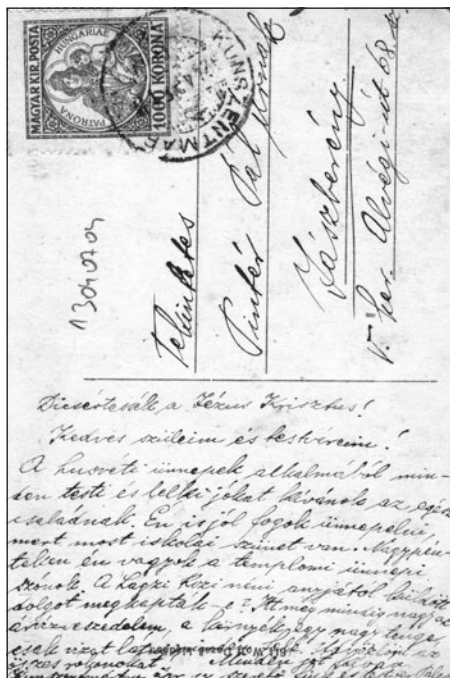 MAGYAR KIR. POSTA
HUNGARIAE
PATRONA
1000 KORONA
KUNSZENTMÁ
13040704
Tekintetes
Pintér Pál úrnak
Jászberény
V. ker. Alvégi-út 68 sz.
Dicsértessék a Jézus Krisztus!
Kedves szüleim és testvéreim!
A husvéti ünnepek alkalmából min-
den testi és lelki jókat kívánok az egész
családnak. Én is jól fogok ünnepelni,
mert most iskolai szünet van. Nagypén-
teken én vagyok a templomi ünnepi
szónok. A Lagzi Rézi néni anyjától küldött
dolgot megkapták-e? Itt még mindig nagy az
árvízveszedelem, a környék egy nagy tenger,
csak vizet az
összes rokonokat. Minden jót kíván
szerető